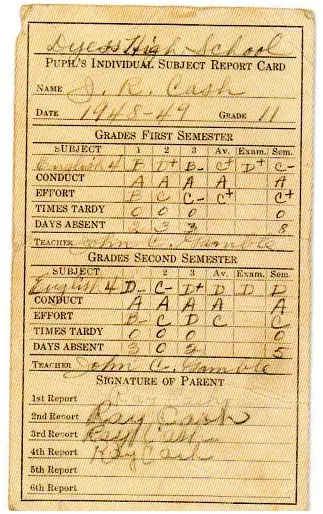 Dyess High School
PUPIL'S INDIVIDUAL SUBJECT REPORT CARD
NAME J. R. Cash
DATE 1948-49 GRADE 11
GRADES FIRST SEMESTER
SUBJECT 1 2 3 Av. Exam. Sem.
English 4 D+ B- C+ D+ C-
CONDUCT A A A A A
EFFORT B C C- C+ C+
TIMES TARDY 0 0 0 0
DAYS ABSENT 2 3 3 8
TEACHER John C. Gamble
GRADES SECOND SEMESTER
SUBJECT 1 2 3 Av. Exam. Sem.
English 4 D- C- D+ D D D
CONDUCT A A A A A
EFFORT B- C D C C
TIMES TARDY 0 0 0 0
DAYS ABSENT 3 0 2 5
TEACHER John C. Gamble
SIGNATURE OF PARENT
1st Report
2nd Report Ray Cash
3rd Report Ray Cash
4th Report Ray Cash
5th Report
6th Report